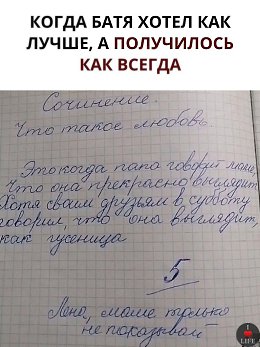 КОГДА БАТЯ ХОТЕЛ КАК
ЛУЧШЕ, А ПОЛУЧИЛОСЬ
КАК ВСЕГДА
Сочинение.
Что такое любовь.
Это когда папа говорит маме,
Что она прекрасно выглядит
Хотя своим друзьям в субботу
говорил, что она выглядит,
как гусеница
5
Лена, маме только
не показывай
I
LIFE